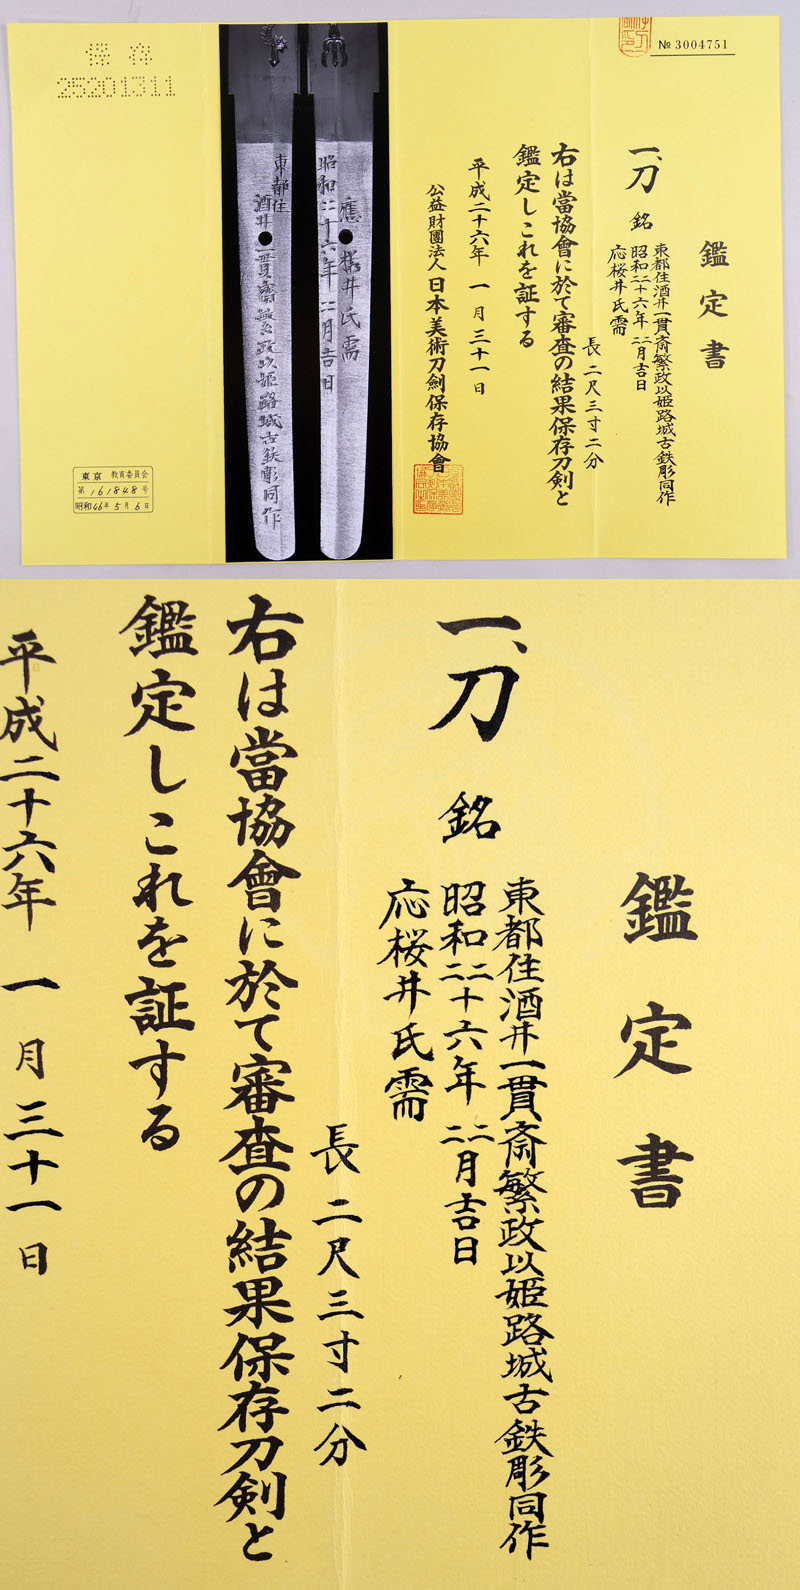 № 3004751
鑑定書
一、刀 銘
東都住酒井一貫斎繁政以姫路城古鉄彫同作
昭和二十六年二月吉日
応桜井氏需
長 二尺三寸二分
右は當協會に於て審査の結果保存刀剣と
鑑定しこれを証する
平成二十六年 一月三十一日
公益財團法人 日本美術刀劍保存協會
應桜井氏需
昭和二十六年二月吉日
東都住
酒井一貫斎繁政以姫路城古鉄彫同作
保存
25201311
東京 教育委員会
第 161848 号
昭和46年5月6日
鑑定書
一、刀 銘
東都住酒井一貫斎繁政以姫路城古鉄彫同作
昭和二十六年二月吉日
応桜井氏需
長 二尺三寸二分
右は當協會に於て審査の結果保存刀剣と
鑑定しこれを証する
平成二十六年 一月三十一日